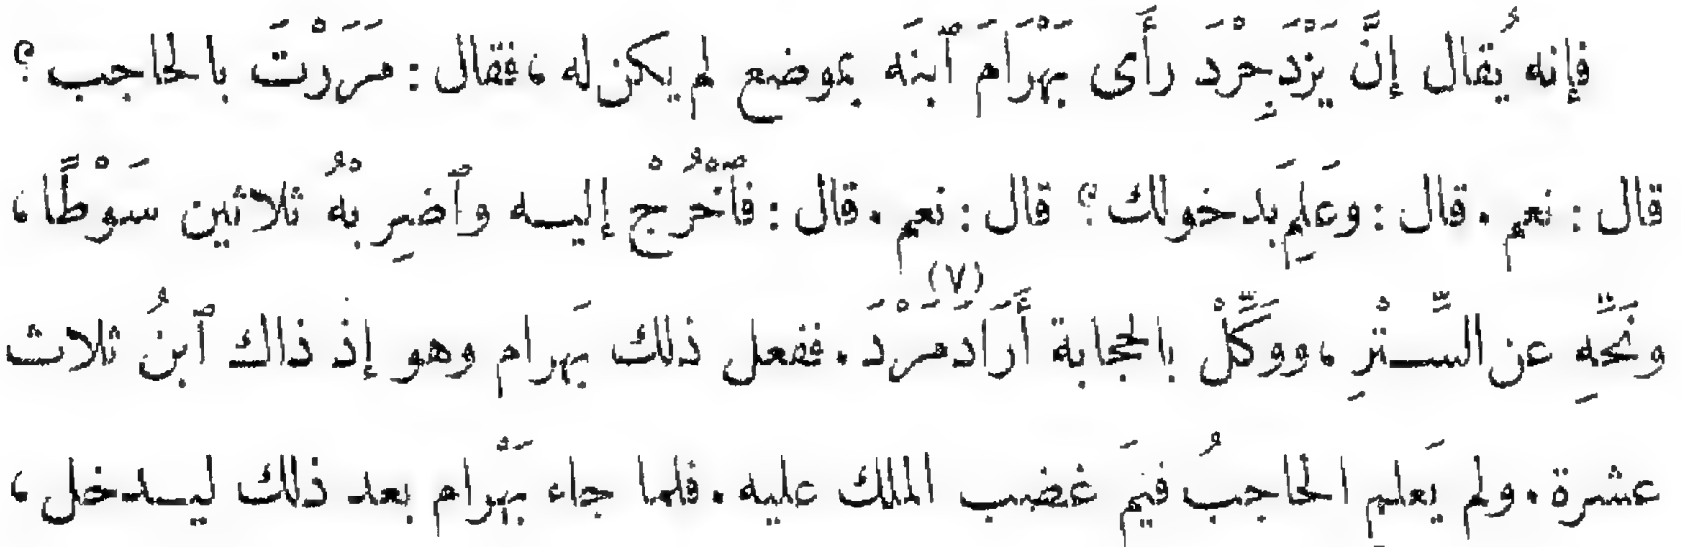 فإنه يُقال إنَّ يَزْدَجِرْدَ رأَى بَهْرَامَ ٱبنَه بموضع لم يكن له، فقال: مَرَرْتَ بالحاجب؟
قال: نعم. قال: وعَلِمَ بدخولك؟ قال: نعم. قال: فٱخْرُجْ إليه وٱضرِبْهُ ثلاثين سَوْطًا،
ونَحِّهِ عن السِّتْرِ، ووَكِّلْ بالحجابة أَرَادَمَرْدَ (٧). ففعل ذلك بَهرام وهو إذ ذاك ٱبنُ ثلاث
عشرة. ولم يَعلمِ الحاجبُ فيمَ غضب الملك عليه. فلما جاء بَهْرام بعد ذلك ليدخل،